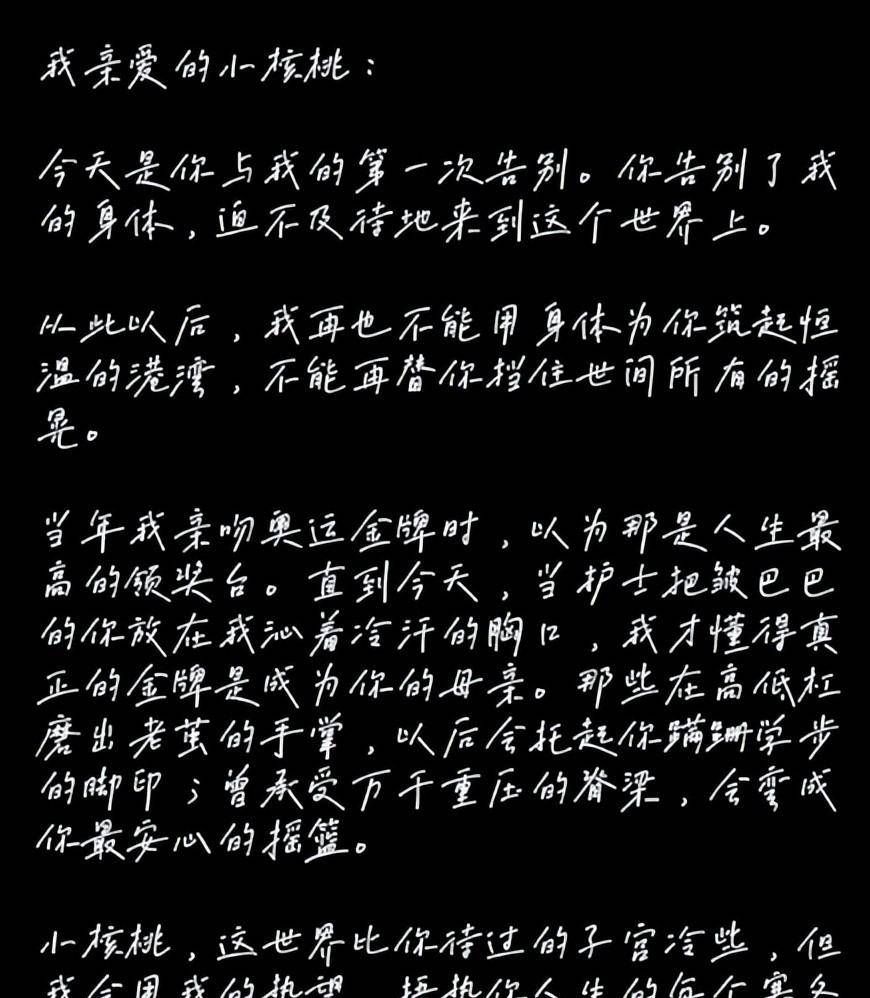 我亲爱的小核桃：
今天是你与我的第一次告别。你告别了我
的身体，迫不及待地来到这个世界上。
从此以后，我再也不能用身体为你筑起恒
温的港湾，不能再替你挡住世间所有的摇
晃。
当年我亲吻奥运金牌时，以为那是人生最
高的领奖台。直到今天，当护士把皱巴巴
的你放在我沁着冷汗的胸口，我才懂得真
正的金牌是成为你的母亲。那些在高低杠
磨出老茧的手掌，以后会托起你蹒跚学步
的脚印；曾承受万千重压的脊梁，会弯成
你最安心的摇篮。
小核桃，这世界比你待过的子宫冷些，但
我会用我的热望，捂热你人生的每个寒冬